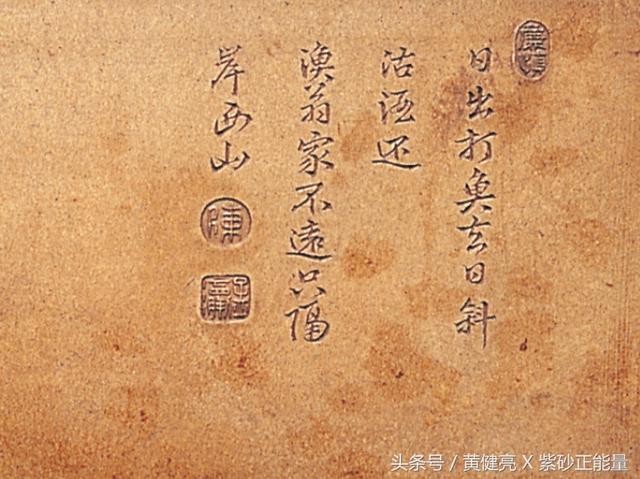 日出打魚去日斜
沽酒还
漁翁家不遠只隔
岸西山
陳
头条号 / 黄健亮 X 紫砂正能量